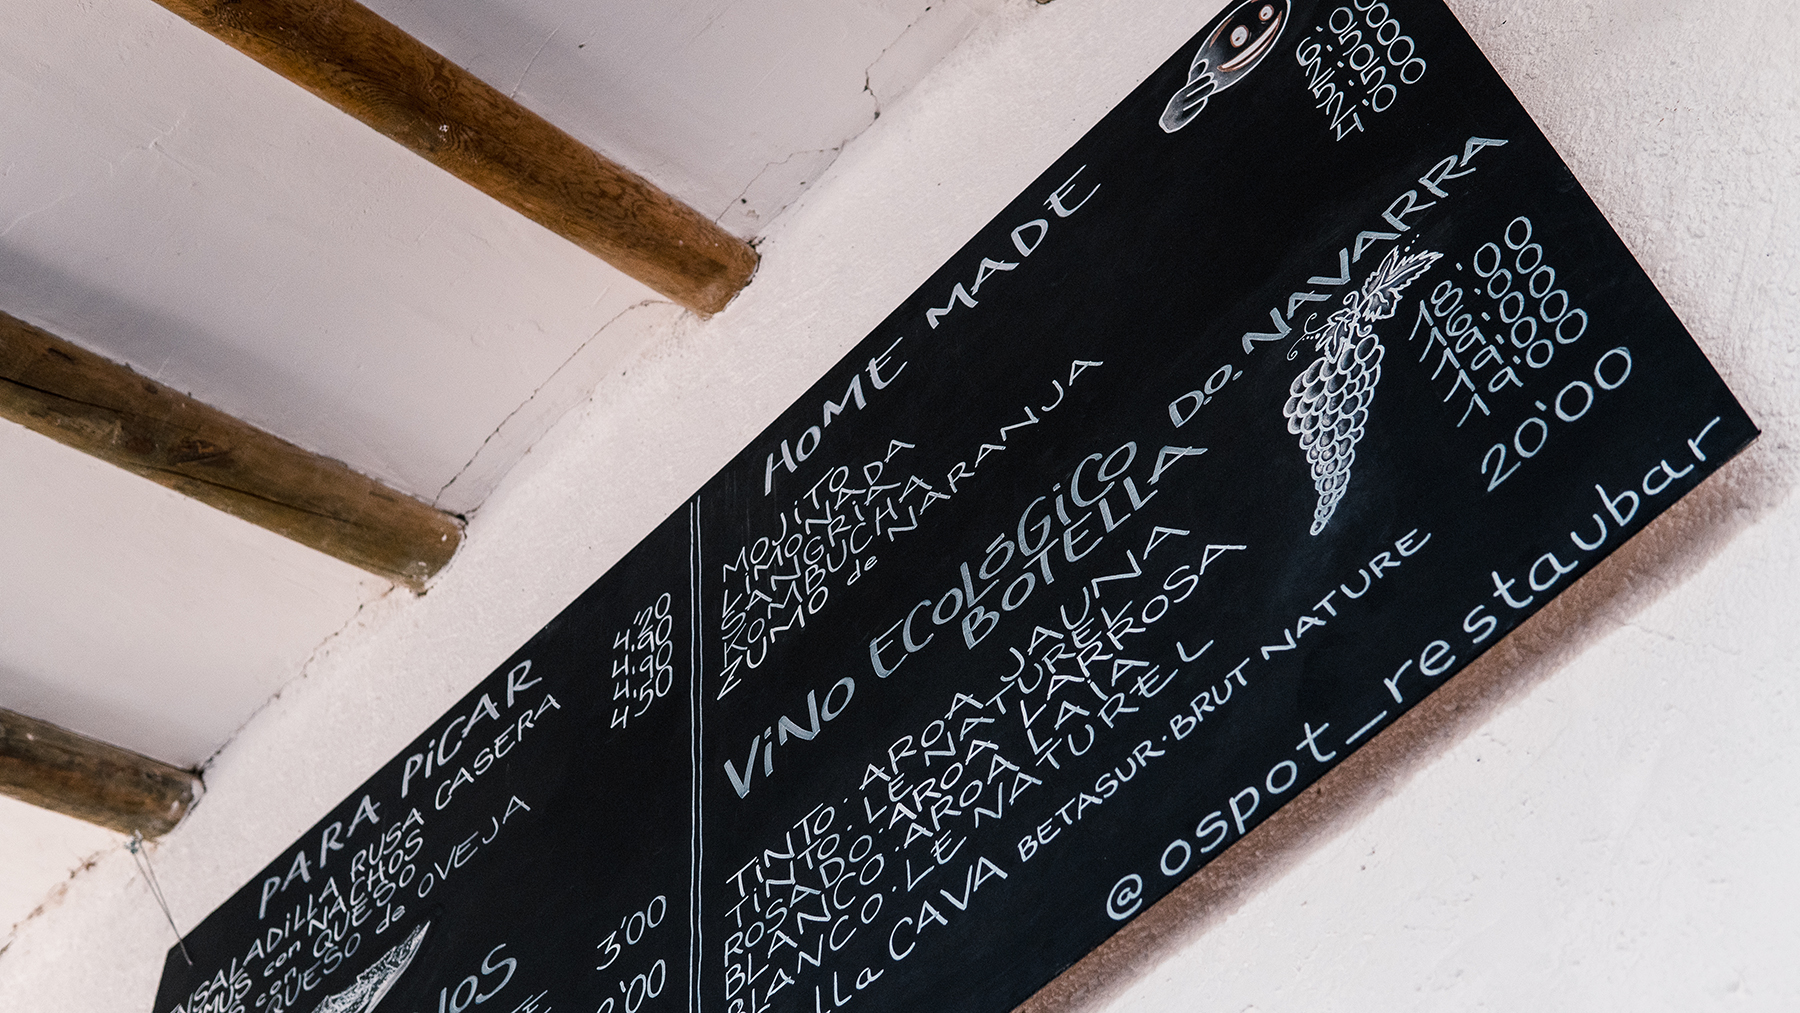 PARA PiCAR
ENSALADiLLA RUSA CASERA 4'20
con NACHOS 4'90
con QUESO 4'90
QUESO de OVEJA 4'50
3'00
HOME MADE
MOJiTO 6'00
LiMONADA 2'50
SANGRiA 5'00
KOMBUCHA 2'50
ZUMO de NARANJA 4'00
ViNO ECOLóGiCO D.O. NAVARRA
BOTELLA
TiNTO · AROA JAUNA 18'00
TiNTO · LE NATUREL
ROSADO · AROA LARROSA
BLANCO · AROA LAiA
BLANCO · LE NATUREL 19'00
CAVA BETASUR · BRUT NATURE 20'00
@ospot_restaubar